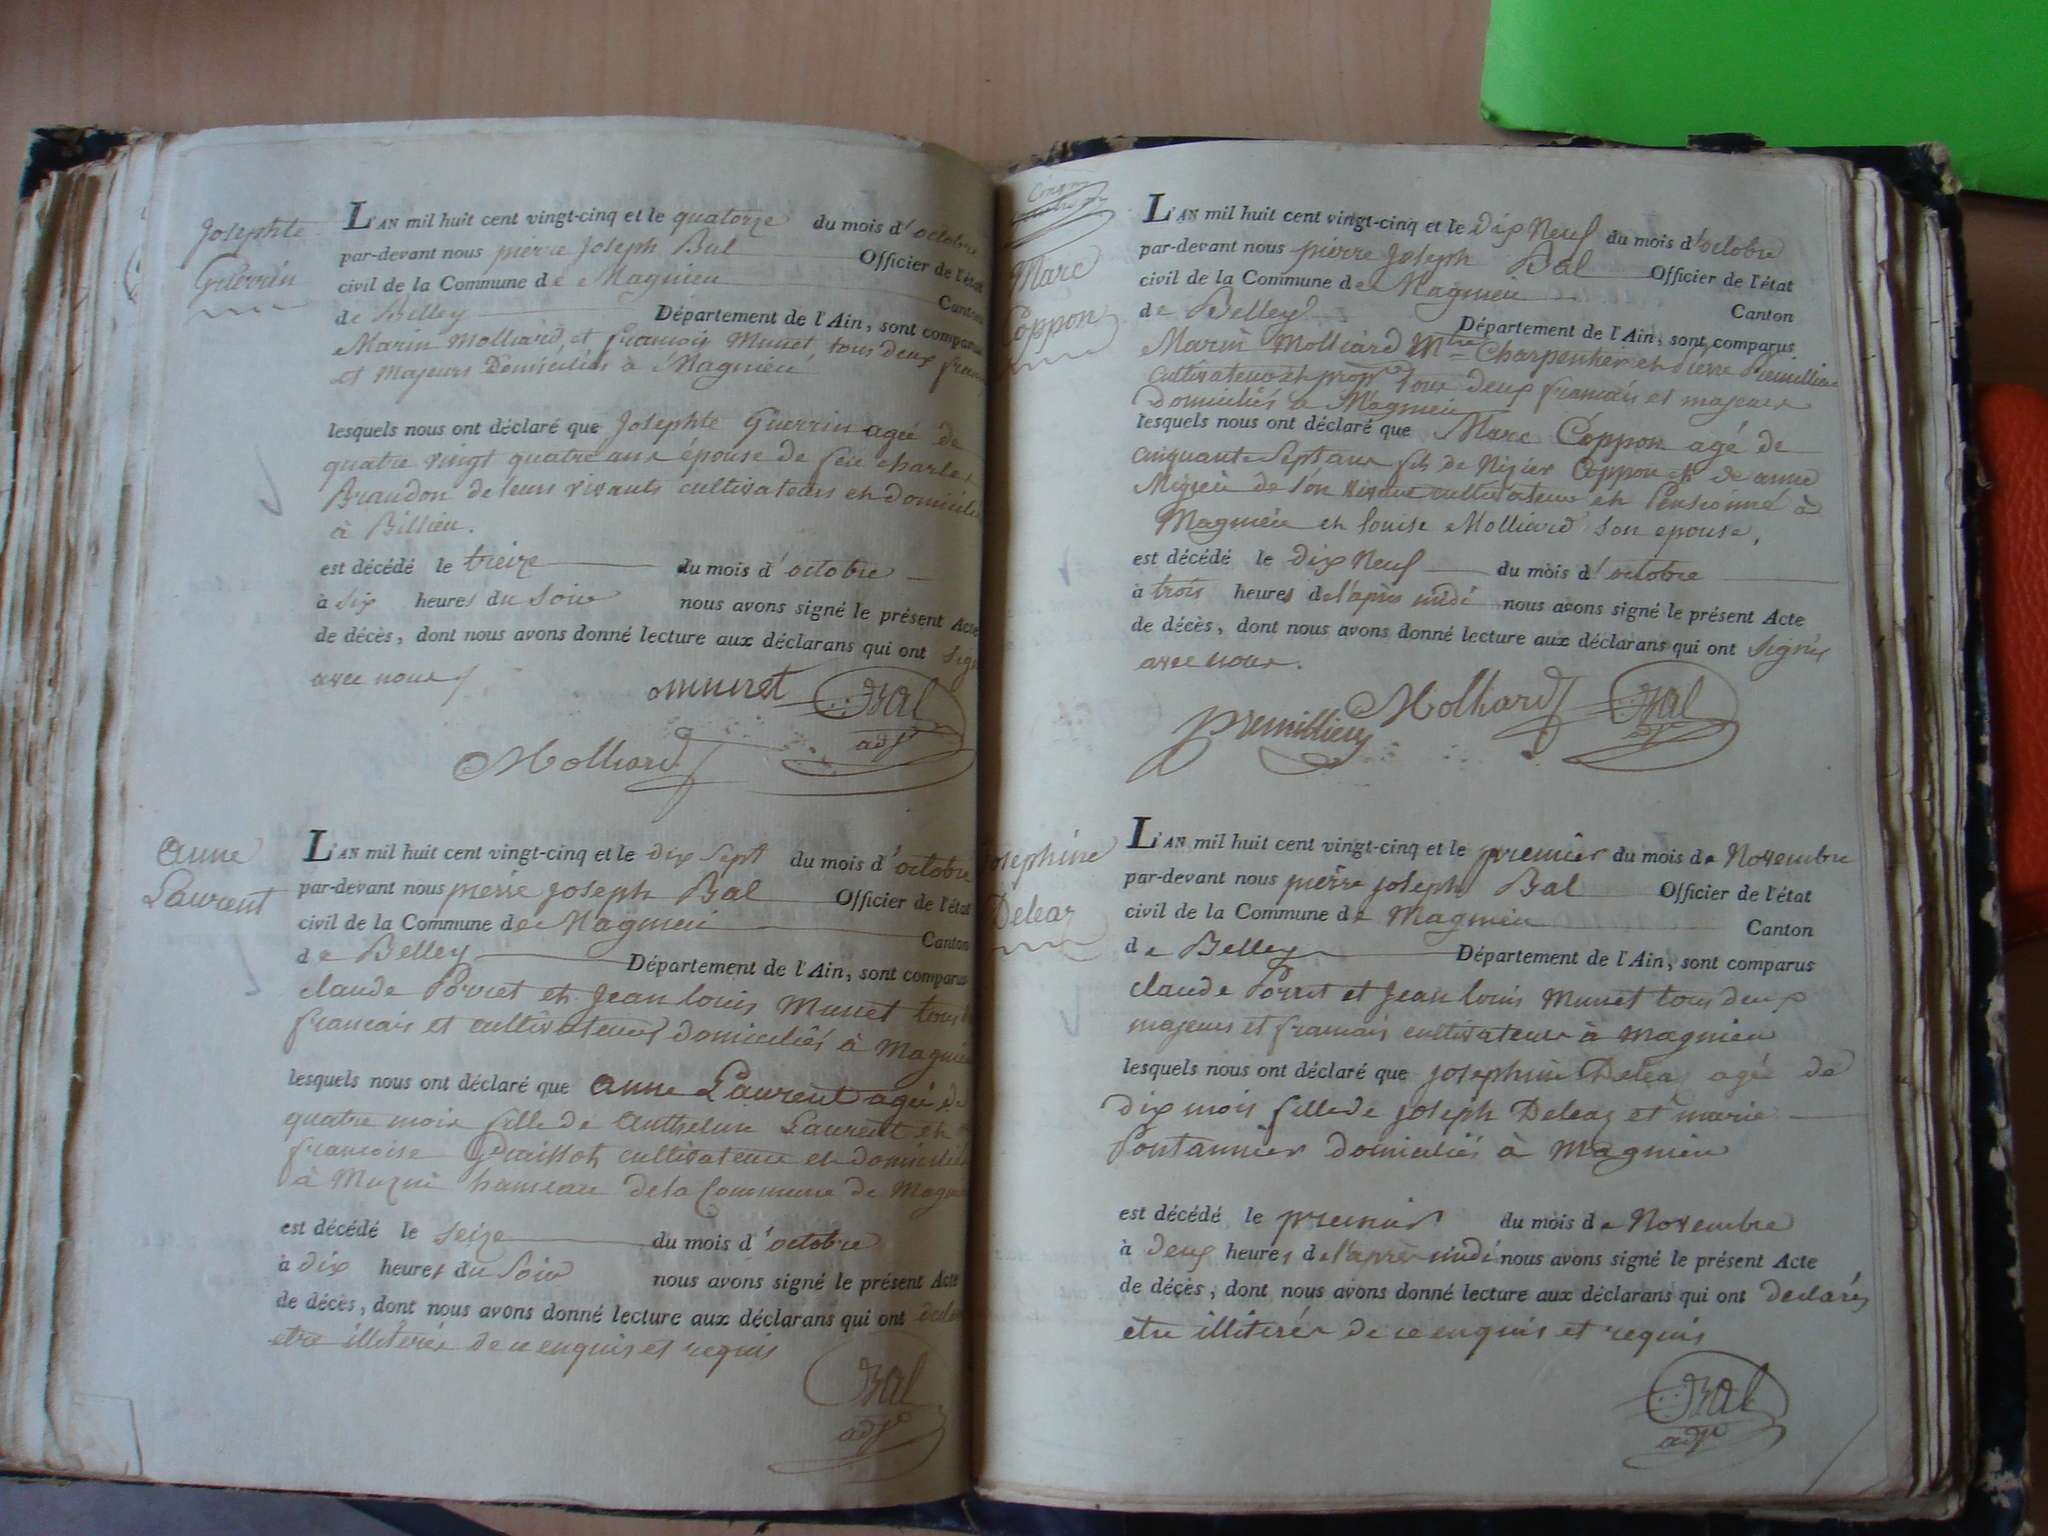 Josephte
Guerrin
L'AN mil huit cent vingt-cinq et le quatorze du mois d'octobre
par-devant nous pierre Joseph Bal Officier de l'état
civil de la Commune de Magnieu Canton
de Belley Département de l'Ain, sont comparus
Marin Molliard et françois Munet tous deux
et Majeurs Domiciliés à Magnieu
lesquels nous ont déclaré que Josephte Guerrin agée de
quatre vingt quatre ans épouse de feu charles
Braudon de leurs vivants cultivateurs et domiciliés
à Billieu.
est décédé le treize du mois d'octobre
à six heures du Soir nous avons signé le présent Acte
de décès, dont nous avons donné lecture aux déclarans qui ont
avec nous
munet Bal
adjt
Molliard
anne
Laurent
L'AN mil huit cent vingt-cinq et le dix Sept du mois d'octobre
par-devant nous pierre Joseph Bal Officier de l'état
civil de la Commune de Magnieu Canton
de Belley Département de l'Ain, sont comparus
claude Porret et Jean louis Munet tous
francais et cultivateurs domiciliés à Magnieu
lesquels nous ont déclaré que anne Laurent agée de
quatre mois fille de Anthelme Laurent et
francoise cultivateurs et domiciliés
à Muzin hameau de la Commune de
est décédé le seize du mois d'octobre
à dix heures du Soir nous avons signé le présent Acte
de décès, dont nous avons donné lecture aux déclarans qui ont
etre illiterés de ce enquis et requis
Bal
adjt
Marc
Coppon
L'AN mil huit cent vingt-cinq et le Dix Neuf du mois d'octobre
par-devant nous pierre Joseph Bal Officier de l'état
civil de la Commune de Magnieu Canton
de Belley Département de l'Ain, sont comparus
Marin Molliard Mtre Charpentier et pierre Premillieu
cultivateur et propre tous deux francais et majeurs
Domiciliés a Magnieu
lesquels nous ont déclaré que Marc Coppon agé de
cinquante Sept ans fils de Nizier Coppon et de anne
de Son vivant cultivateur et Pensionné à
Magnieu et louise Molliard son epouse,
est décédé le dix Neuf du mois d'octobre
à trois heures de l'après midi nous avons signé le présent Acte
de décès, dont nous avons donné lecture aux déclarans qui ont Signés
avec nous.
Molliard Bal
premillieu adjt
Josephine
Deleaz
L'AN mil huit cent vingt-cinq et le premier du mois de Novembre
par-devant nous pierre joseph Bal Officier de l'état
civil de la Commune de Magnieu Canton
de Belley Département de l'Ain, sont comparus
claude Porret et Jean louis Munet tous deux
majeurs et francais cultivateurs à magnieu
lesquels nous ont déclaré que josephine Deleaz agée de
dix mois fille de joseph Deleaz et marie
Pontannier domiciliés à Magnieu
est décédé le premier du mois de Novembre
à deux heures de l'après midi nous avons signé le présent Acte
de décès, dont nous avons donné lecture aux déclarans qui ont declarés
etre illiterés de ce enquis et requis
Bal
adjt